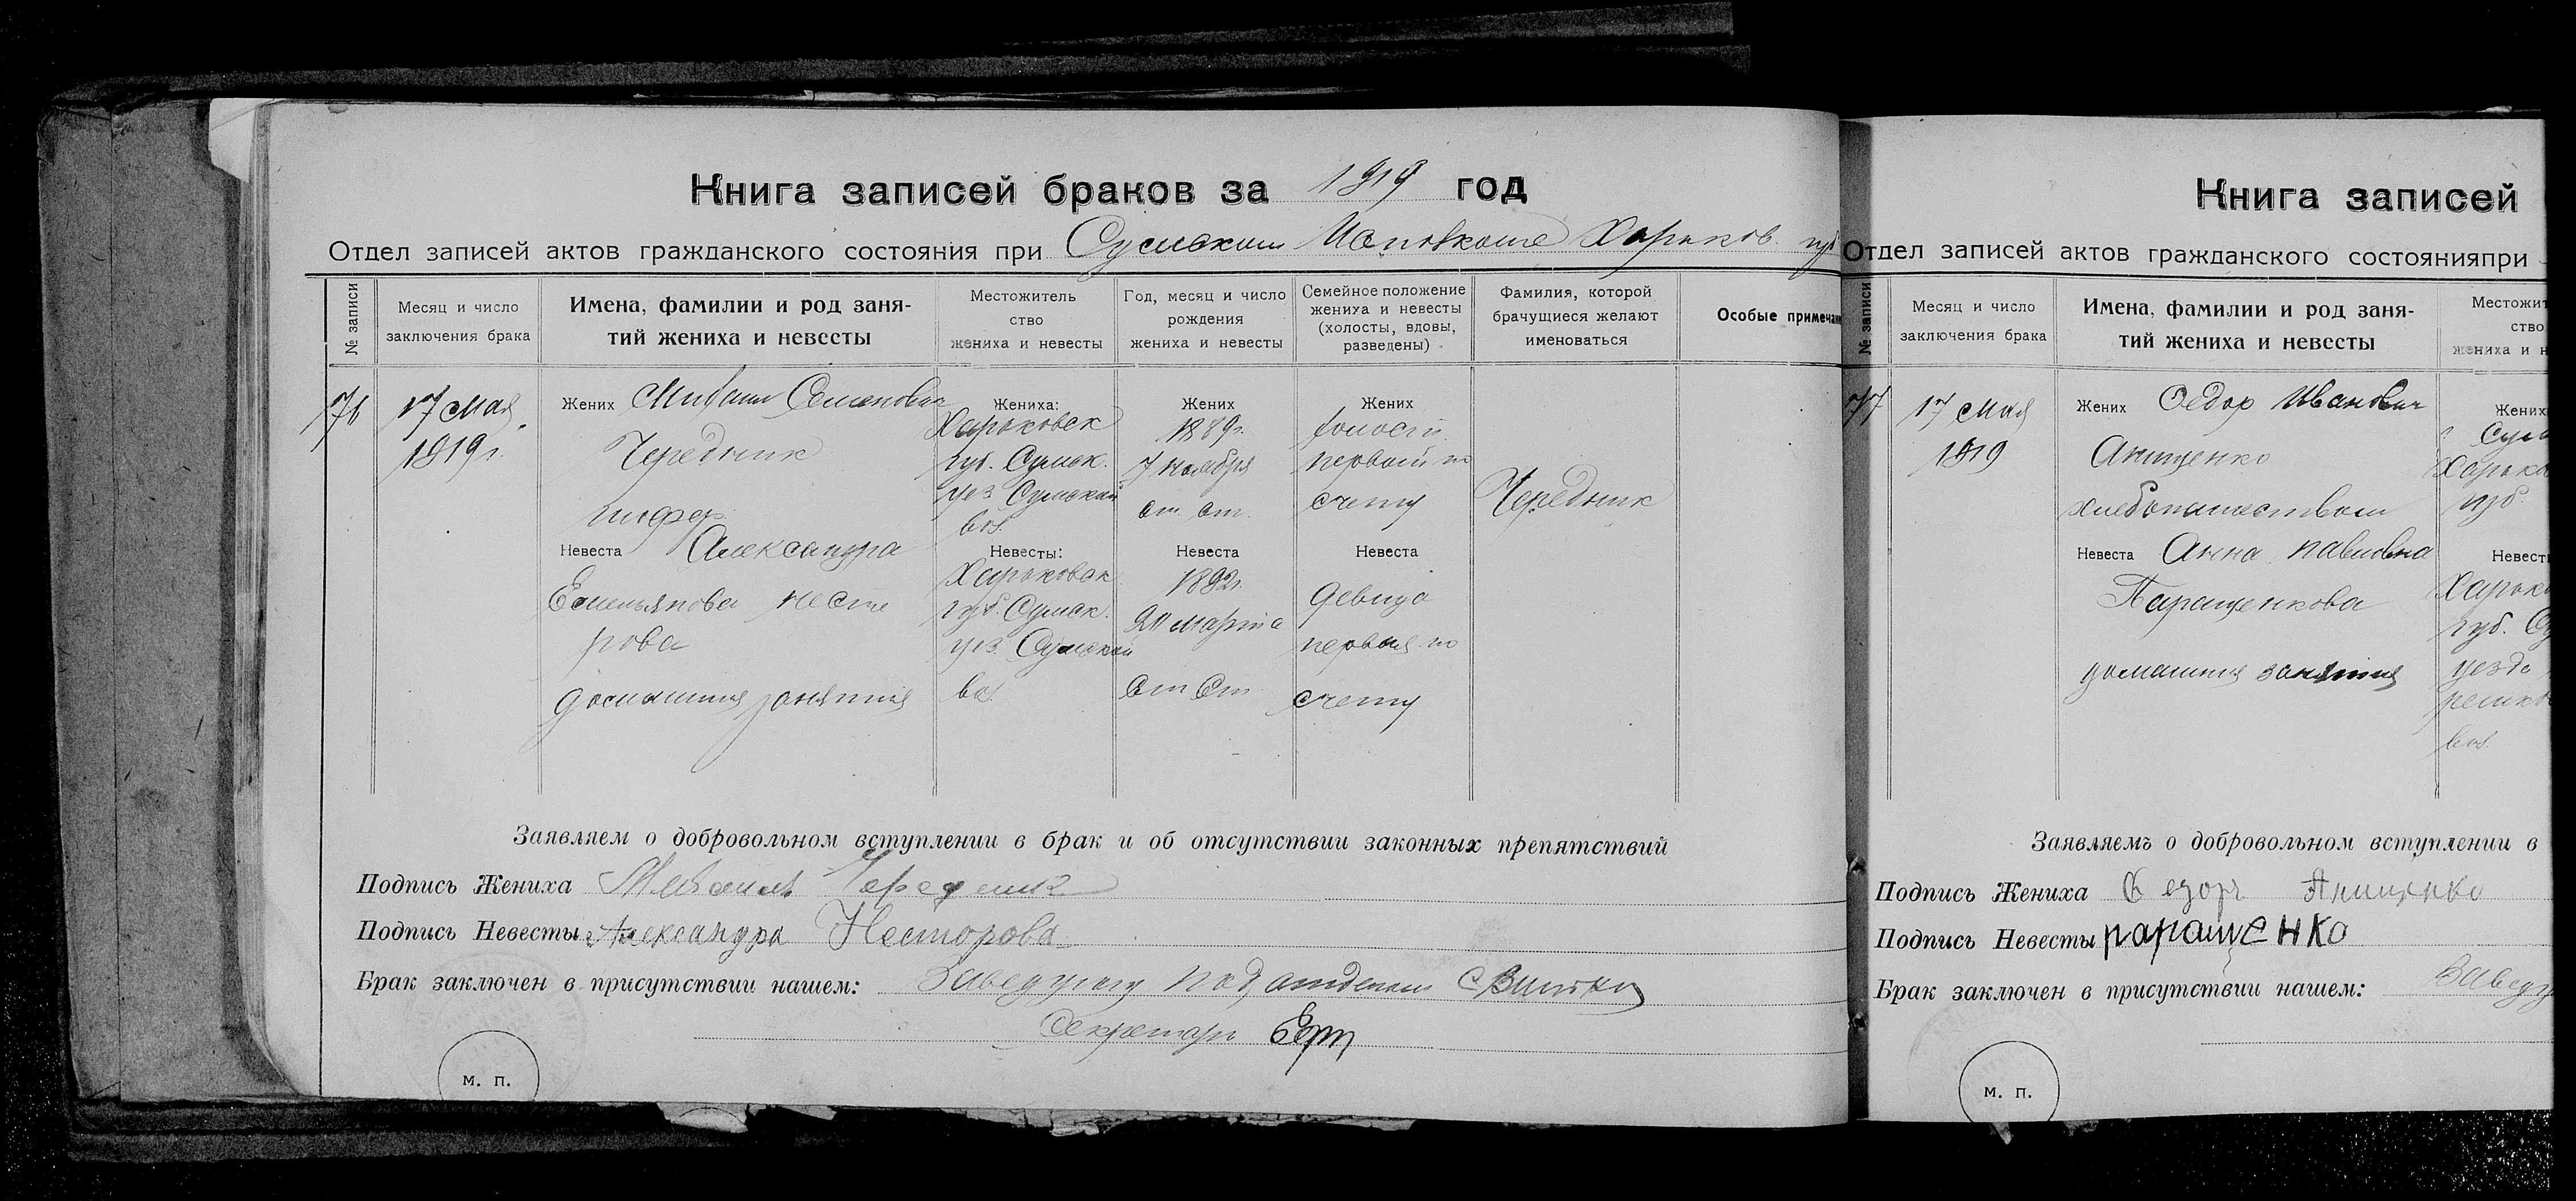 Книга записей браков за 1919 год
Отдел записей актов гражданского состояния при Сумском Исполкоме Харьков. губ
№ записи
Месяц и число
заключения брака
Имена, фамилии и род заня-
тий жениха и невесты
Местожитель
ство
жениха и невесты
Год, месяц и число
рождения
жениха и невесты
Семейное положение
жениха и невесты
(холосты, вдовы,
разведены)
Фамилия, которой
брачущиеся желают
именоваться
Особые примечан
76
17 мая
1919 г.
Жених Михаил Семенович
Чередник
шофер
Невеста Александра
Емельянова Несте
рова
домашния занятия
Жениха:
Харьковск
губ. Сумск.
уез. Сумской
вол.
Невесты:
Харьковск
губ. Сумск.
уез. Сумской
вол.
Жених
1889 г.
7 ноября
ст. ст.
Невеста
1892 г.
20 марта
ст ст
Жених
холост
первый по
счету
Невеста
девица
первый по
счету
Чередник
Заявляем о добровольном вступлении в брак и об отсутствии законных препятствий
Подпись Жениха Михаил Чередник
Подпись Невесты Александра Несторова
Брак заключен в присутствии нашем: Заведующ подотделом
Секретарь
м. п.
Книга записей
Отдел записей актов гражданского состоянияпри
№ записи
Месяц и число
заключения брака
Имена, фамилии и род заня-
тий жениха и невесты
Местожит
ство
жениха и н
77
17 мая
1919
Жених Федор Иванович
Анищенко
хлебопашеством
Невеста Анна Павловна
Паращенкова
домашния занятия
Жених
Сум
Харько
губ.
Невест
Харько
губ. Су
уезда
вол.
Заявляемъ о добровольном вступлении в
Подпись Жениха Федоръ Анищенко
Подпись Невесты паращенко
Брак заключен в присутствии нашем: Заведу
м. п.